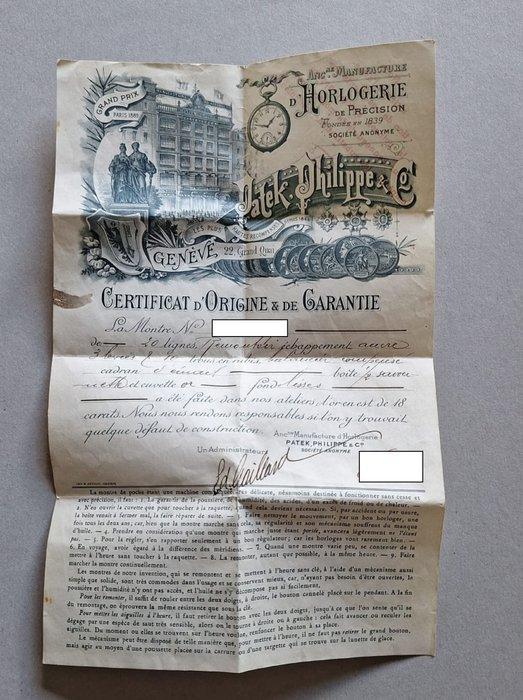 GRAND PRIX
PARIS 1889
ANC.NE MANUFACTURE
D'HORLOGERIE
DE PRÉCISION
FONDÉE EN 1839
SOCIÉTÉ ANONYME
Patek Philippe & Co
LES PLUS HAUTES RÉCOMPENSES
GENÈVE 22, Grand Quai
CERTIFICAT D'ORIGINE & DE GARANTIE
La Montre, No
de 20 lignes, Remontoir échappement ancre
balancier compensé
cadran émail boîte 1/2 savon
et cuvette or fond lisses
a été faite dans nos ateliers, l'or en est de 18
carats. Nous nous rendons responsables si l'on y trouvait
quelque défaut de construction.
Ancne Manufacture d'Horlogerie
PATEK, PHILIPPE & Co
SOCIÉTÉ ANONYME
Un Administrateur
Ed. Gaillard
La montre de poche étant une machine très délicate, néanmoins destinée à fonctionner sans cesse et
avec précision, il faut : 1. Le garantir de la poussière, de humidité, des acides, d'un excès de froid ou de chaleur.
2. N'en ouvrir la cuvette que pour toucher à la raquette, quand cela devient nécessaire. Si, par accident ou par usure,
la boîte venait à fermer mal, la faire réparer de suite. 3. Faire nettoyer le mouvement, par un bon horloger, une
fois tous les deux ans; car, bien que la montre marche sans cela, sa régularité et son mécanisme souffrent du manque
d'huile. 4. Prendre en considération qu'une montre qui marche juste étant portée, avancera légèrement ne l'étant
pas. 5. Pour la régler, s'en rapporter seulement à un bon régulateur; car les horloges vont rarement bien.
6. En voyage, avoir égard à la différence des méridiens. 7. Quand une montre varie peu, se contenter de la
mettre à l'heure sans toucher à la raquette. 8. La remonter, autant que possible, à la même heure. 9. Faire
marcher la montre continuellement.
Les montres de notre invention, qui se remontent et se mettent à l'heure sans clé, à l'aide d'un mécanisme aussi
simple que solide, sont très commodes dans l'usage et se conservent mieux, car, n'ayant pas besoin d'être ouvertes, la
poussière et l'humidité n'y ont pas accès, et l'huile ne s'y décompose pas si facilement.
Pour les remonter, il suffit de rouler entre les deux doigts, à droite, le bouton cannelé placé sur le pendant. A la fin
du remontage, on éprouvera la même résistance que sous la clé.
Pour mettre les aiguilles à l'heure, il faut retirer le bouton avec les deux doigts, jusqu'à ce que l'on sente qu'il se
dégage par une espèce de saut très sensible, alors on le tourne à droite ou à gauche : cela fait avancer ou reculer les
aiguilles. Du moment où elles se trouvent sur l'heure voulue, renfoncer le bouton à sa place.
Le mécanisme peut être disposé de telle manière que, pour mettre à l'heure, il ne faut pas retirer le grand bouton,
mais agir au moyen d'un poussette placée sur la carrure ou d'une targette qui se trouve sur la lunette de glace.